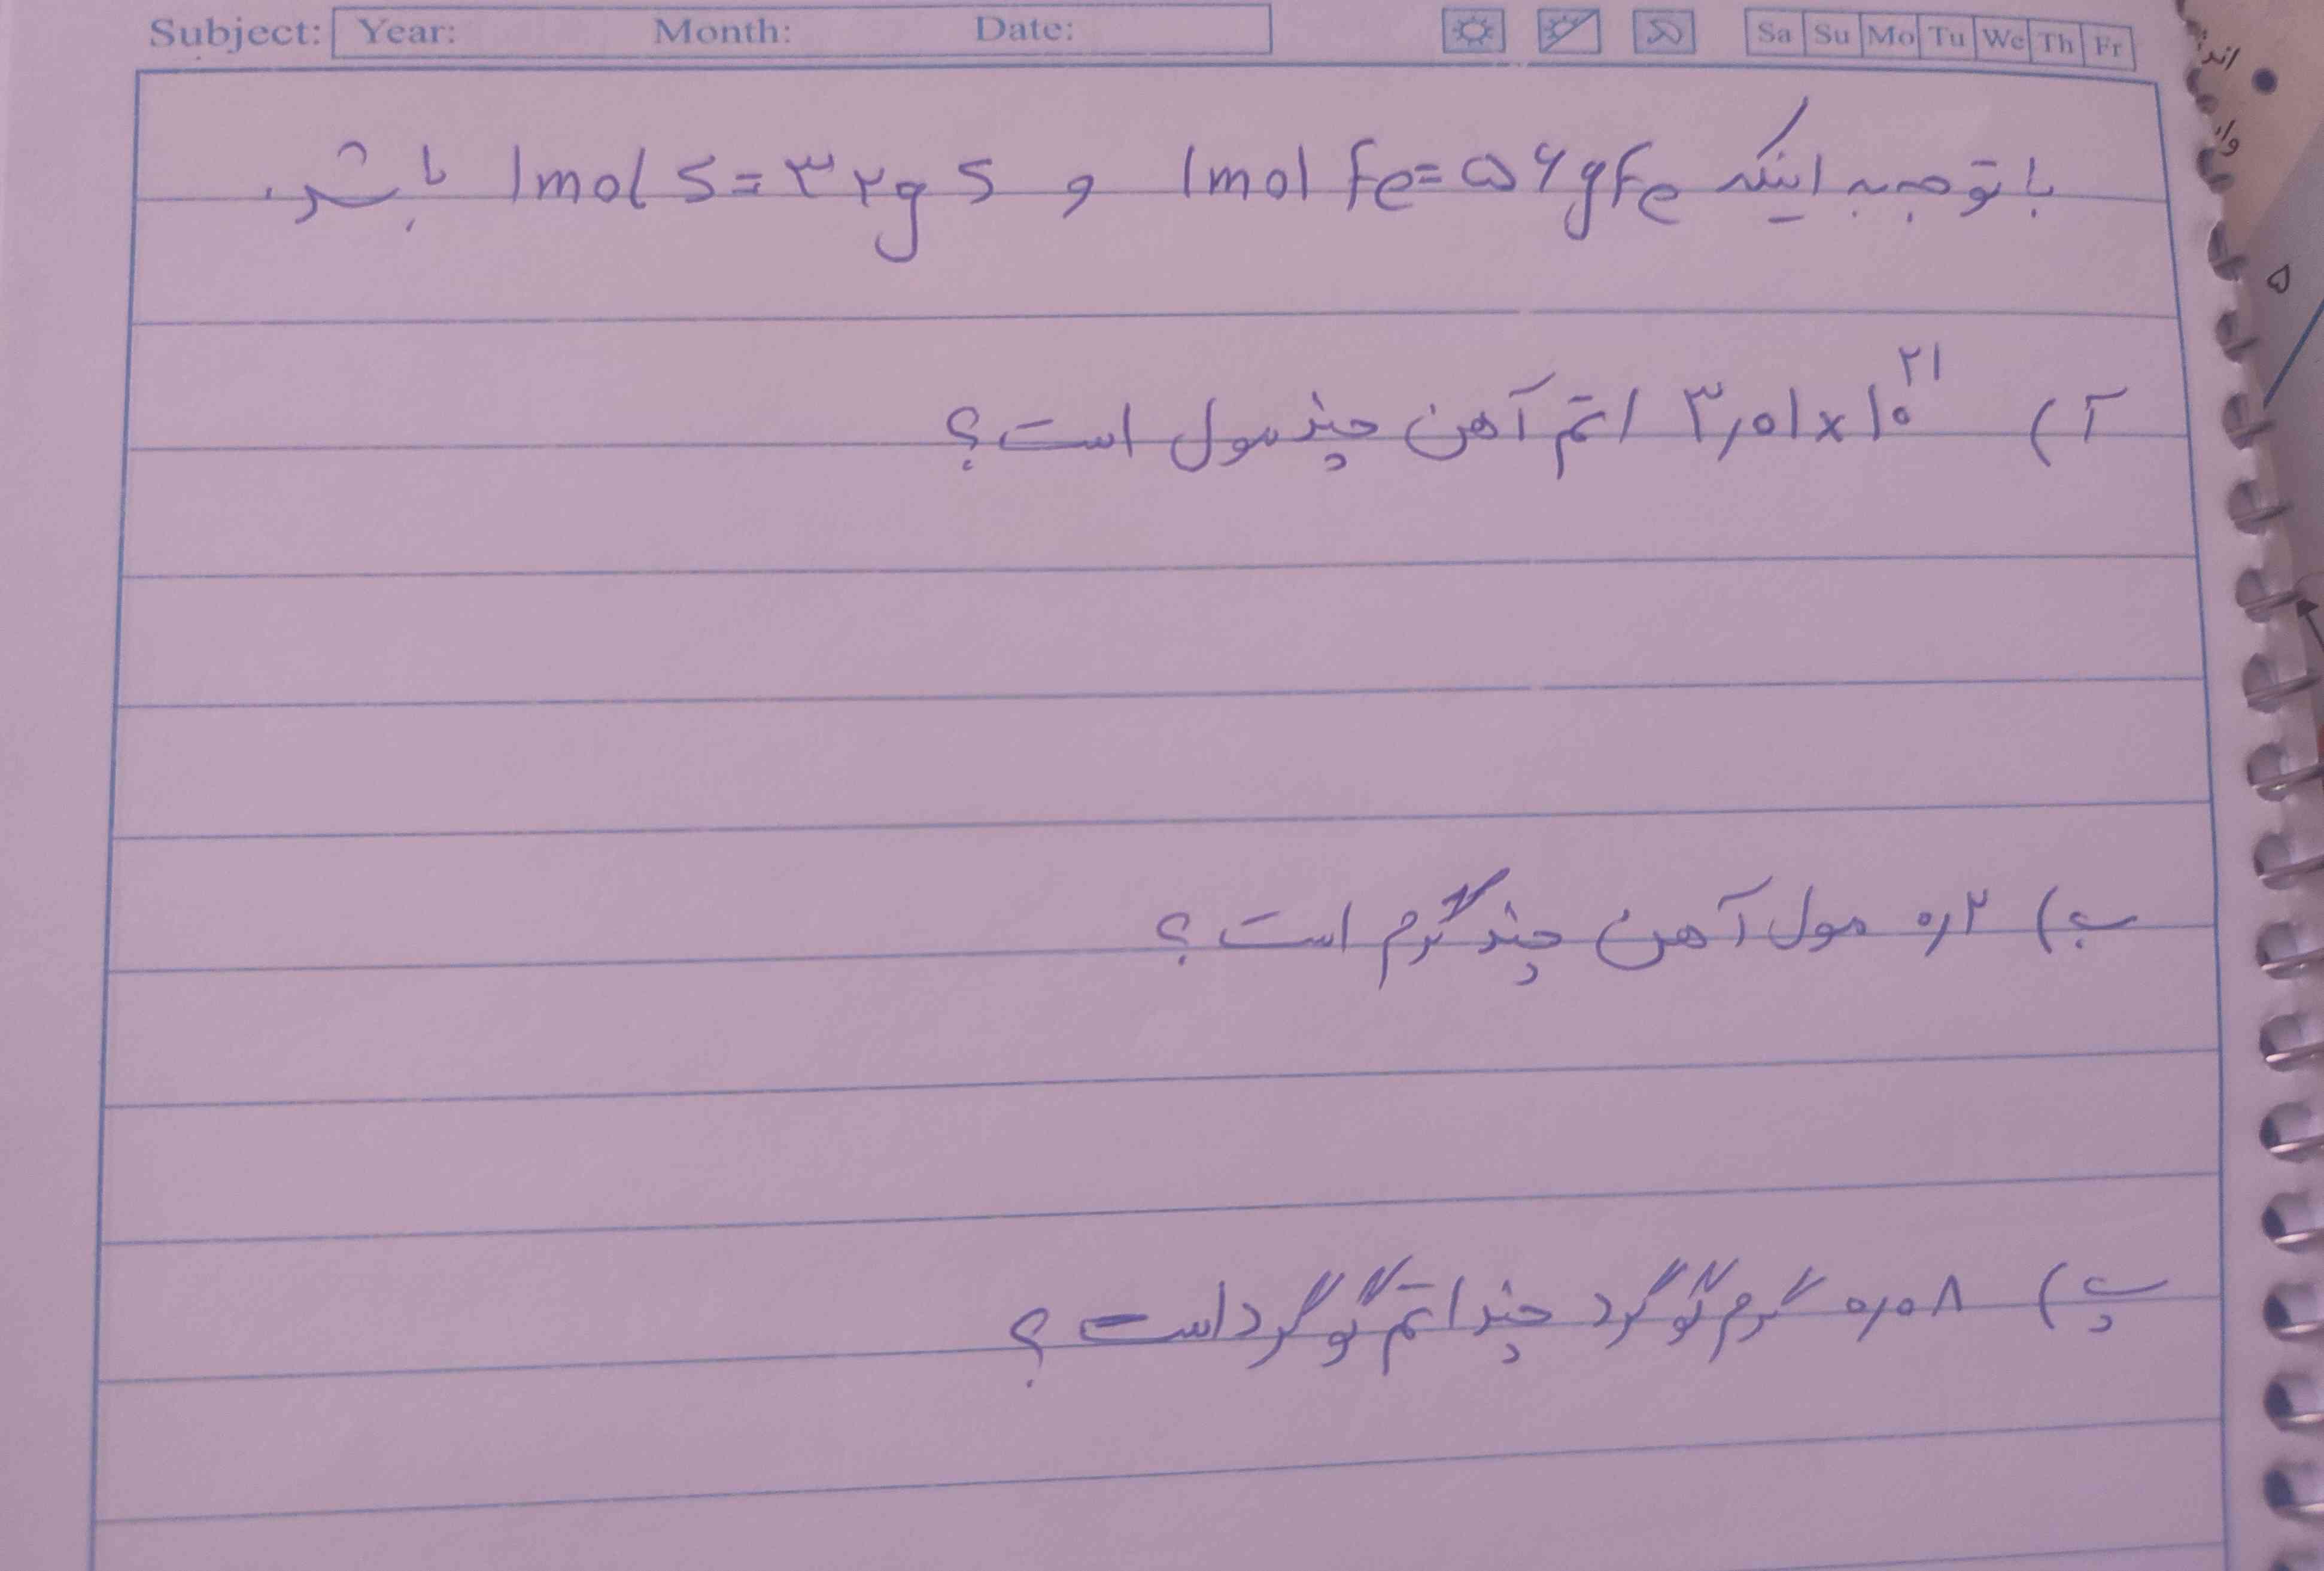 Subject: Year: Month: Date: Sa Su Mo Tu We Th Fr
با توجه به اینکه 1mol Fe=۵۶gFe و 1mol S=۳۲g S باشد.
آ) ۳٫۰۱x۱۰^۲۱ اتم آهن چند مول است؟
ب) ۰٫۲ مول آهن چند گرم است؟
پ) ۰٫۰۸ گرم گوگرد چند اتم گوگرد است؟